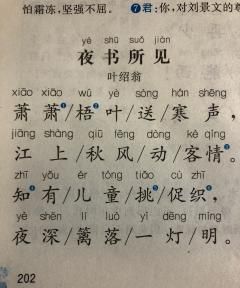 怕霜冻,坚强不屈。 ❼君:你,对刘景文的尊
yè shū suǒ jiàn
夜书所见
叶绍翁
xiāo xiāo wú yè sòng hán shēng
萧萧❶/梧❷叶/送/寒声,
jiāng shàng qiū fēng dòng kè qíng
江上/秋风/动/客情❸。
zhī yǒu ér tóng tiǎo cù zhī
知有/儿童/挑❹/促织❺,
yè shēn lí luò yì dēng míng
夜深/篱落/一灯/明。
202